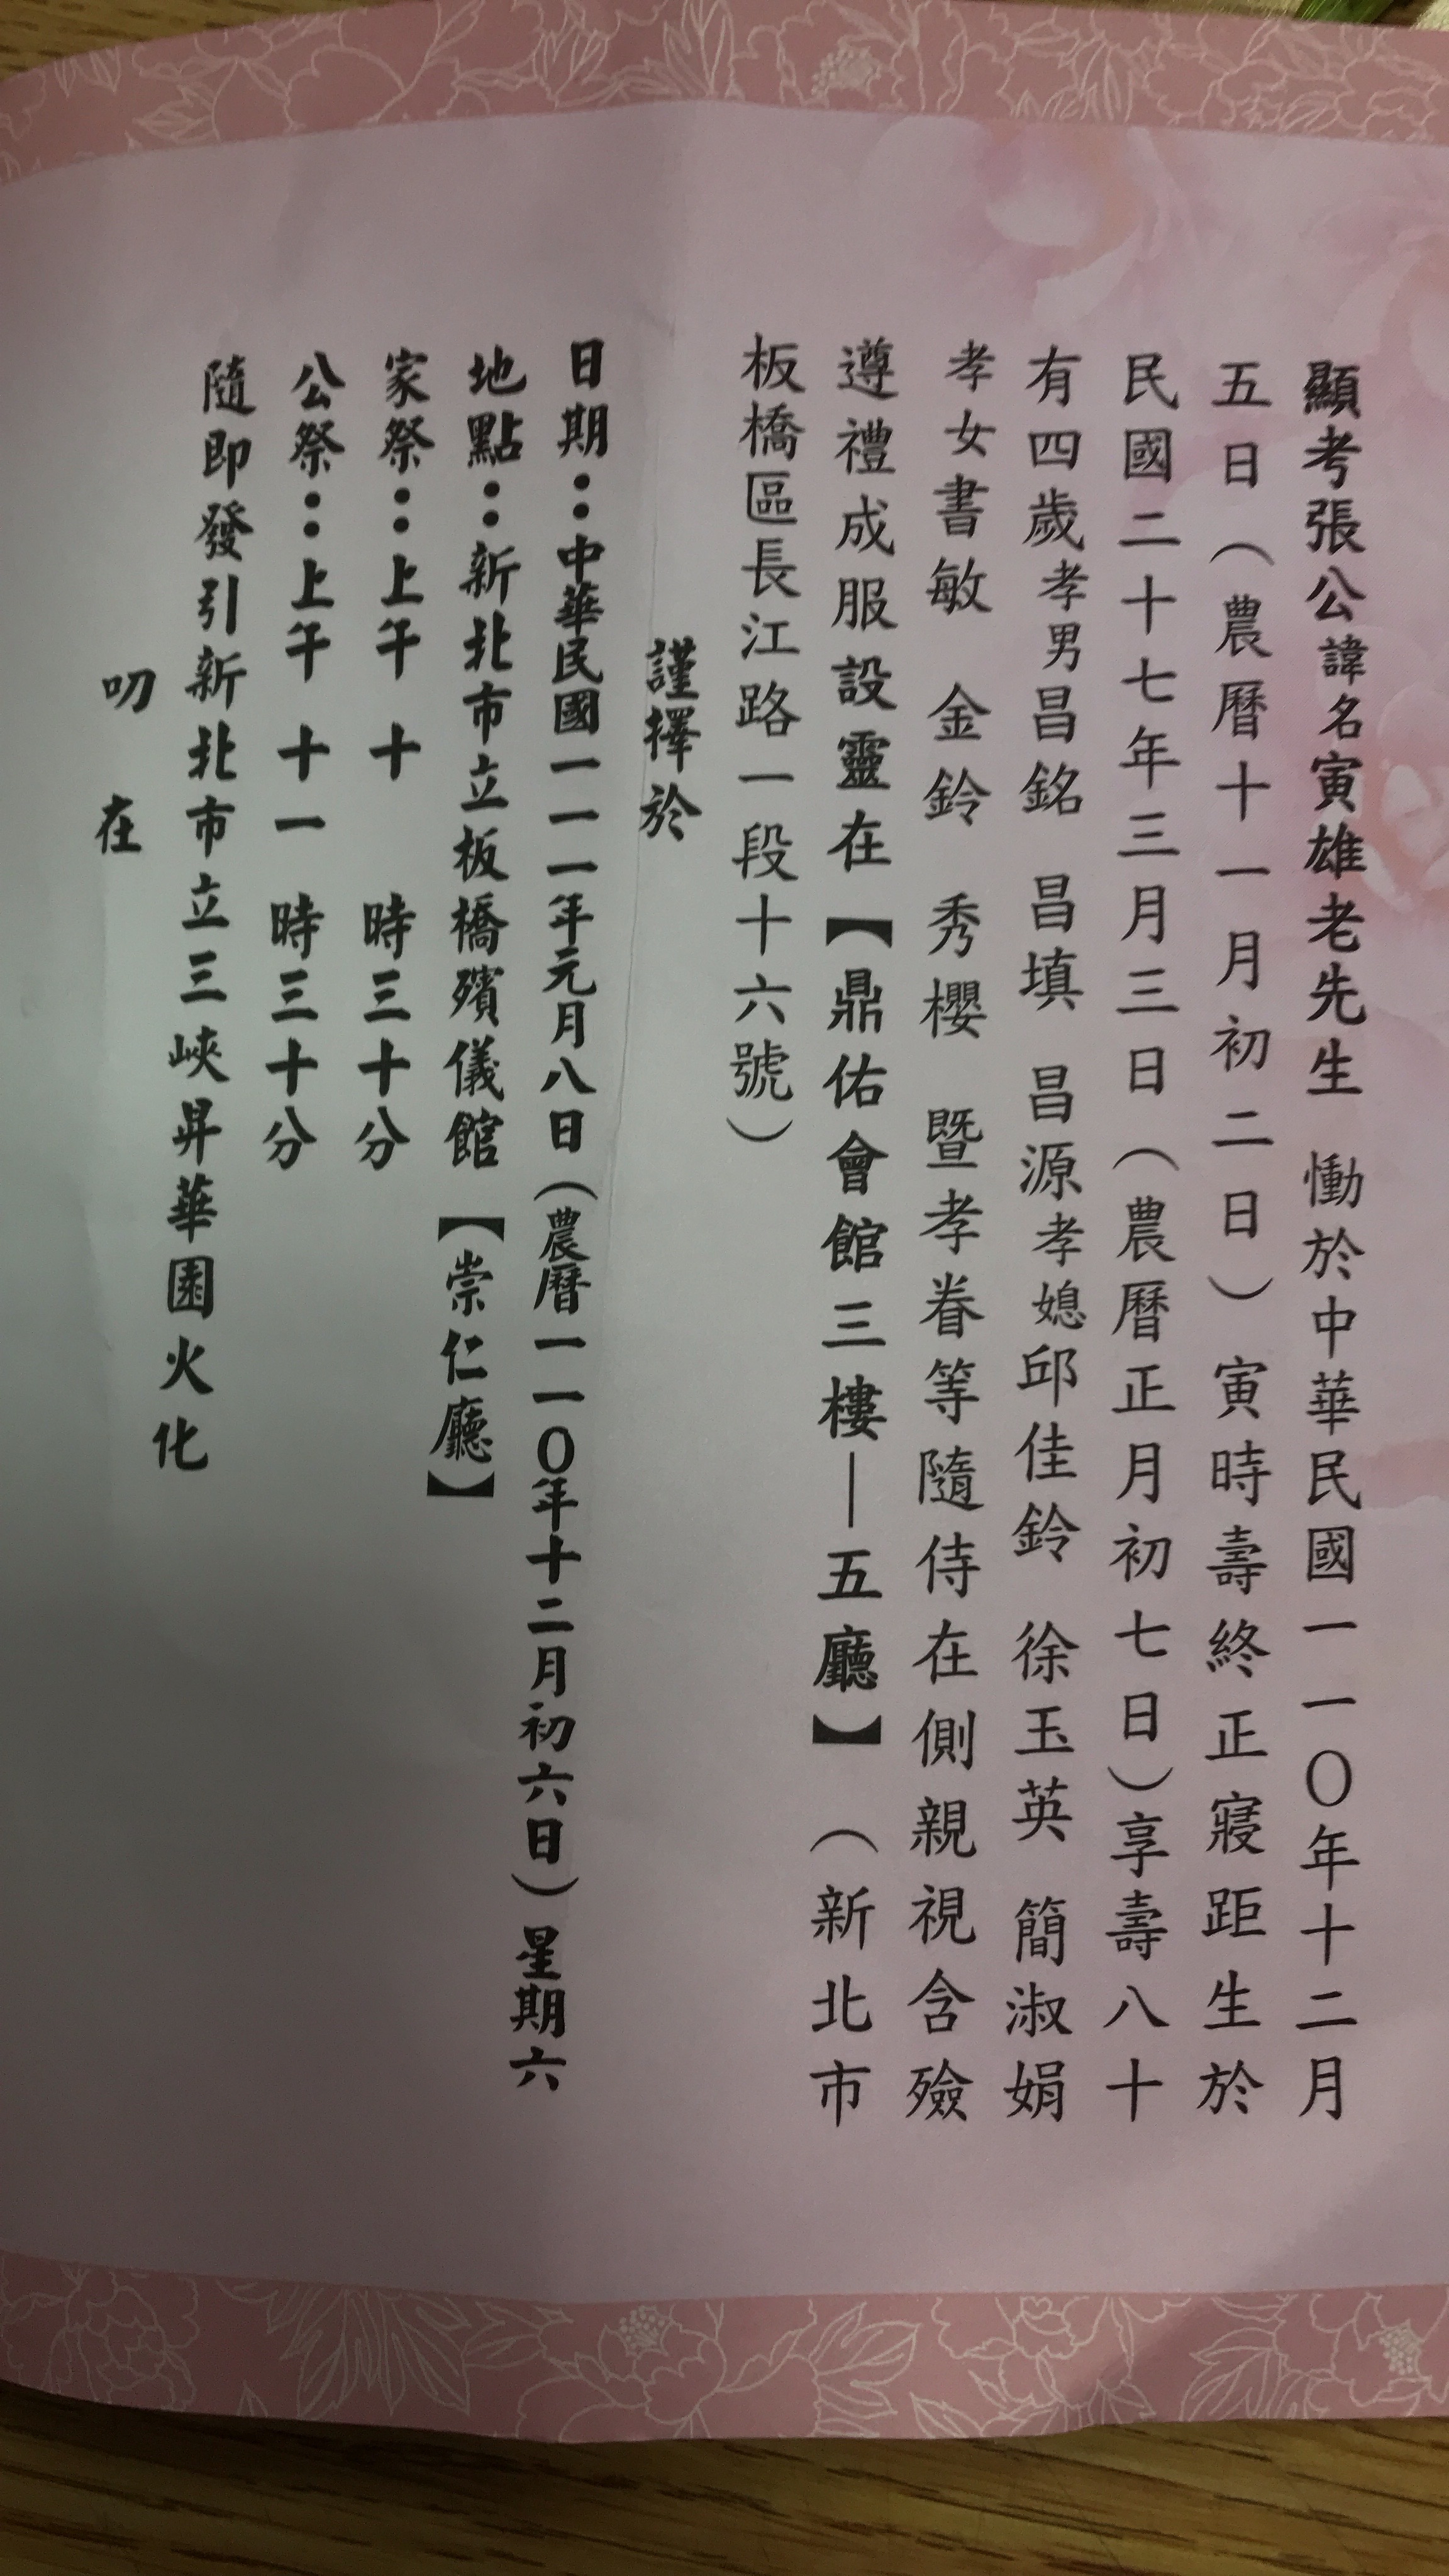 顯考張公諱名寅雄老先生 慟於中華民國一一〇年十二月
五日（農曆十一月初二日）寅時壽終正寢距生於
民國二十七年三月三日（農曆正月初七日）享壽八十
有四歲孝男昌銘 昌填 昌源孝媳邱佳鈴 徐玉英 簡淑娟
孝女書敏 金鈴 秀櫻 暨孝眷等隨侍在側親視含殮
遵禮成服設靈在【鼎佑會館三樓—五廳】（新北市
板橋區長江路一段十六號）
謹擇於
日期：中華民國一一一年元月八日（農曆一一〇年十二月初六日）星期六
地點：新北市立板橋殯儀館【崇仁廳】
家祭：上午 十 時三十分
公祭：上午 十一 時三十分
隨即發引新北市立三峽昇華園火化
叨 在